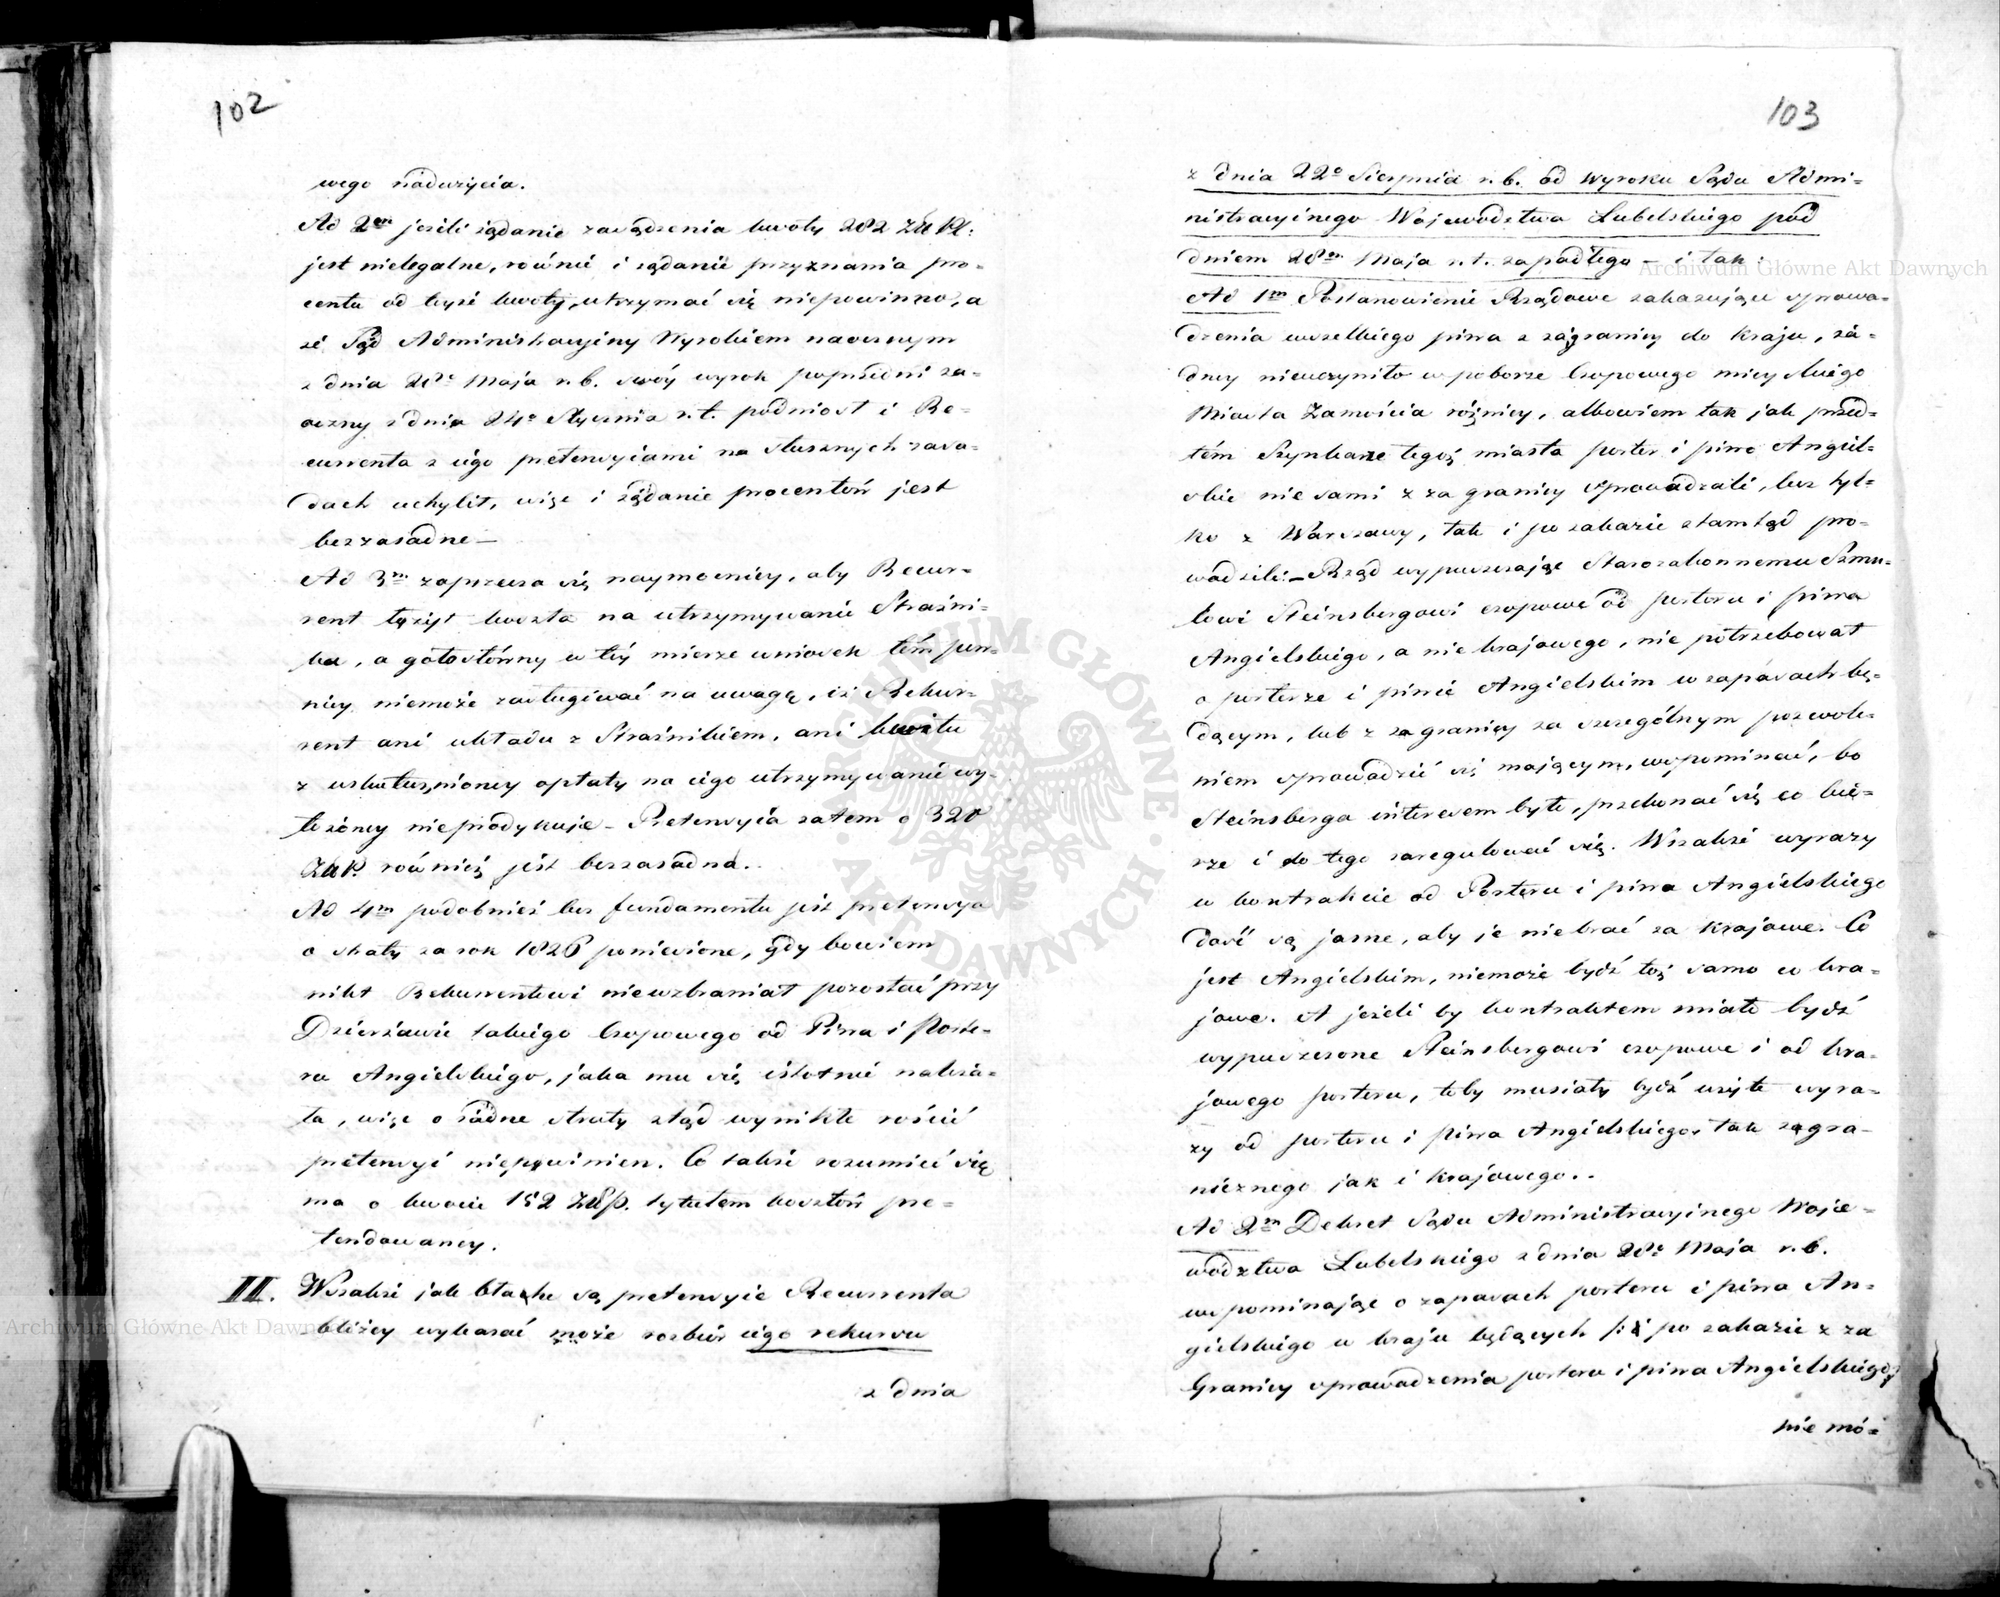 102
wego nadużycia.
Ad 2m jeżeli żądanie zasądzenia kwoty 282 Złt Pl:
jest nielegalne, równie i żądanie przyznania pro=
centu od teyże kwoty, utrzymać się niepowinno, a
że Sąd Administracyiny Wyrokiem naocznym
z dnia 28o Maja r.b. swóy wyrok poprzedni za=
oczny z dnia 24o Stycznia r.t. podniosł i Re=
currenta z iego pretensyiami na słusznych zasa=
dach uchylił, więc i żądanie procentów jest
bezzasadne —
Ad 3m zaprzecza się naymocniey, aby Recur=
rent łożył koszta na utrzymywanie Strażni=
ka, a gołosłowny w tey mierze wniosek tém pew=
niey niemoże zasługiwać na uwagę, iż Rekur=
rent ani układu z Strażnikiem, ani kwitu
z uskutecznioney opłaty na iego utrzymywanie wy=
łożoney nieprodykuje — Pretensyia zatem o 320
Złt P. również jest bezzasadna.
Ad 4m podobnież bez fundamentu jest pretensya
o straty za rok 1826 poniesione, gdy bowiem
nikt Rekurrentowi niewzbraniał pozostać przy
Dzierżawie takiego Czopowego od Piwa i Porte=
ru Angielskiego, jaka mu się istotnie należa=
ła, więc o żadne straty ztąd wynikłe rościć
pretensyi niepowinien. Co także rozumieć się
ma o kwocie 152 Złp. tytułem kosztów pre=
tendowaney.
II. Wszakże jak błache są pretensyie Recurrenta
bliżey wykazać może rozbiór iego rekursu
z dnia
103
z dnia 22o Sierpnia r.b. od Wyroku Sądu Admi=
nistracyinego Woiewództwa Lubelskiego pod
dniem 28m Maja r.t. zapadłego — i tak:
Ad 1m Postanowienie Rządowe zakazujące sprowa=
dzenia wszelkiego piwa z zagranicy do kraju, ża=
dney nieuczyniło w poborze Czopowego mieyskiego
Miasta Zamościa różnicy, albowiem tak jak przed=
tém Szynkarze tegoż miasta porter i piwo Angiel=
skie nie sami z za granicy sprowadzali, lecz tyl=
ko z Warszawy, tak i po zakazie ztamtąd pro=
wadzili: — Rząd wypuszczając Starozakonnemu Szmu=
lowi Steinsbergowi czopowe od porteru i piwa
Angielskiego, a nie krajowego, nie potrzebował
o porterze i piwie Angielskim w zapasach bę=
dącym, lub z zagranicy za szczególnym pozwole=
niem sprowadzić się mającym, wspominać, bo
Steinsberga interesem było, przekonać się co bie=
rze i do tego zaregulować się. Wszakże wyrazy
w kontrakcie od Porteru i piwa Angielskiego
dość są jasne, aby je nie brać za krajowe. Co
jest Angielskim, niemoże bydź toż samo co kra=
jowe. A jeżeli by kontraktem miało bydź
wypuszczone Steinsbergowi czopowe i od kra=
jowego porteru, toby musiały bydź użyte wyra=
zy od porteru i piwa Angielskiego, tak zagra=
nicznego jak i krajowego..
Ad 2m Dekret Sądu Administracyinego Woje=
wództwa Lubelskiego z dnia 28o Maja r.b.
wspominając o zapasach porteru i piwa An=
gielskiego w kraju będących /: i po zakazie z za
Granicy sprowadzenia porteru i piwa Angielskiego:/
nie mó=
Archiwum Główne Akt Dawnych
Archiwum Główne Akt Dawnych
ARCHIWUM GŁÓWNE · AKT DAWNYCH ·